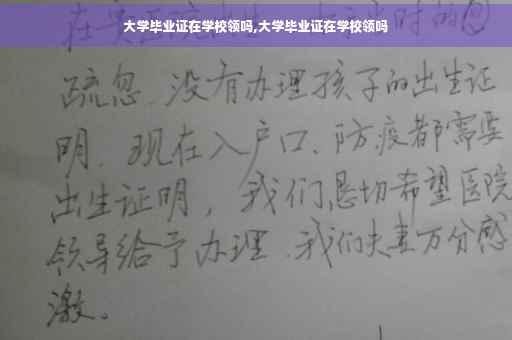 大学毕业证在学校领吗,大学毕业证在学校领吗
疏忽.没有办理孩子的出生证
明.现在入户口、防疫都需要
出生证明，我们恳切希望医院
领导给予办理.我们夫妻万分感
激。